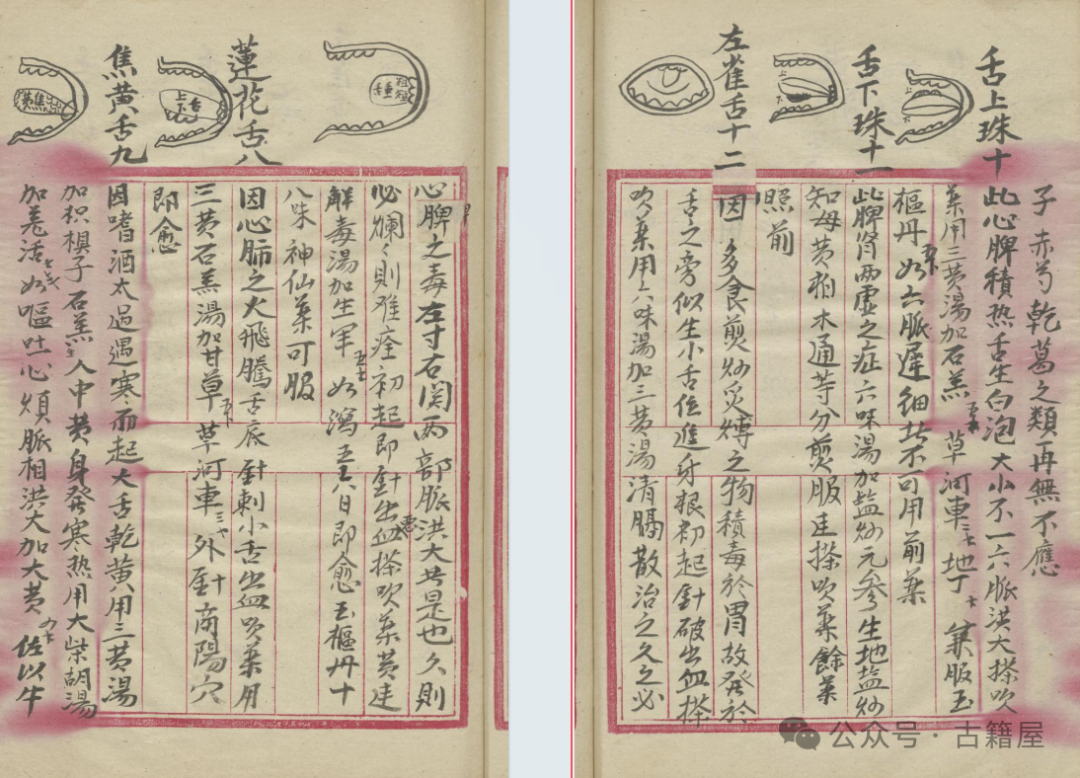 心脾之毒左寸右関两部脈洪大者是也久則
必爛〻則难痊初起即針出血搽吹藥黄連
觧毒湯加生軍 如瀉五六日即愈玉樞丹十
八味神仙藥可服
蓮花舌八
因心肺之火飛騰舌底針刺小舌出血吹藥用
三黄石羔湯加甘草 草河車 外針商陽穴
即愈
焦黄舌九
因嗜酒太過遇寒而起大舌乾黄用三黄湯
加枳椇子石羔人中黄身發寒热用大柴胡湯
加羌活 如嘔吐心煩脈相洪大加大黄 佐以牛
焦黄
舌
上
下
子赤芍乾葛之類再無不應
舌上珠十
此心脾積热舌生白泡大小不一六脈洪大搽吹
藥用三黄湯加石羔 草河車 地丁 兼服玉
樞丹如六脈遲細者不可用前藥
舌下珠十一
此脾肾两虚之症六味湯加盐炒元参生地盐炒
知母黄柏木通等分煎服連搽吹藥餘藥
照前
左雀舌十二
因多食煎炒炙煿之物積毒於胃故發於
舌之旁似生小舌位進牙根初起針破出血搽
吹藥用六味湯加三黄湯清膈散治之久之必
上
上
下
公众号·古籍屋